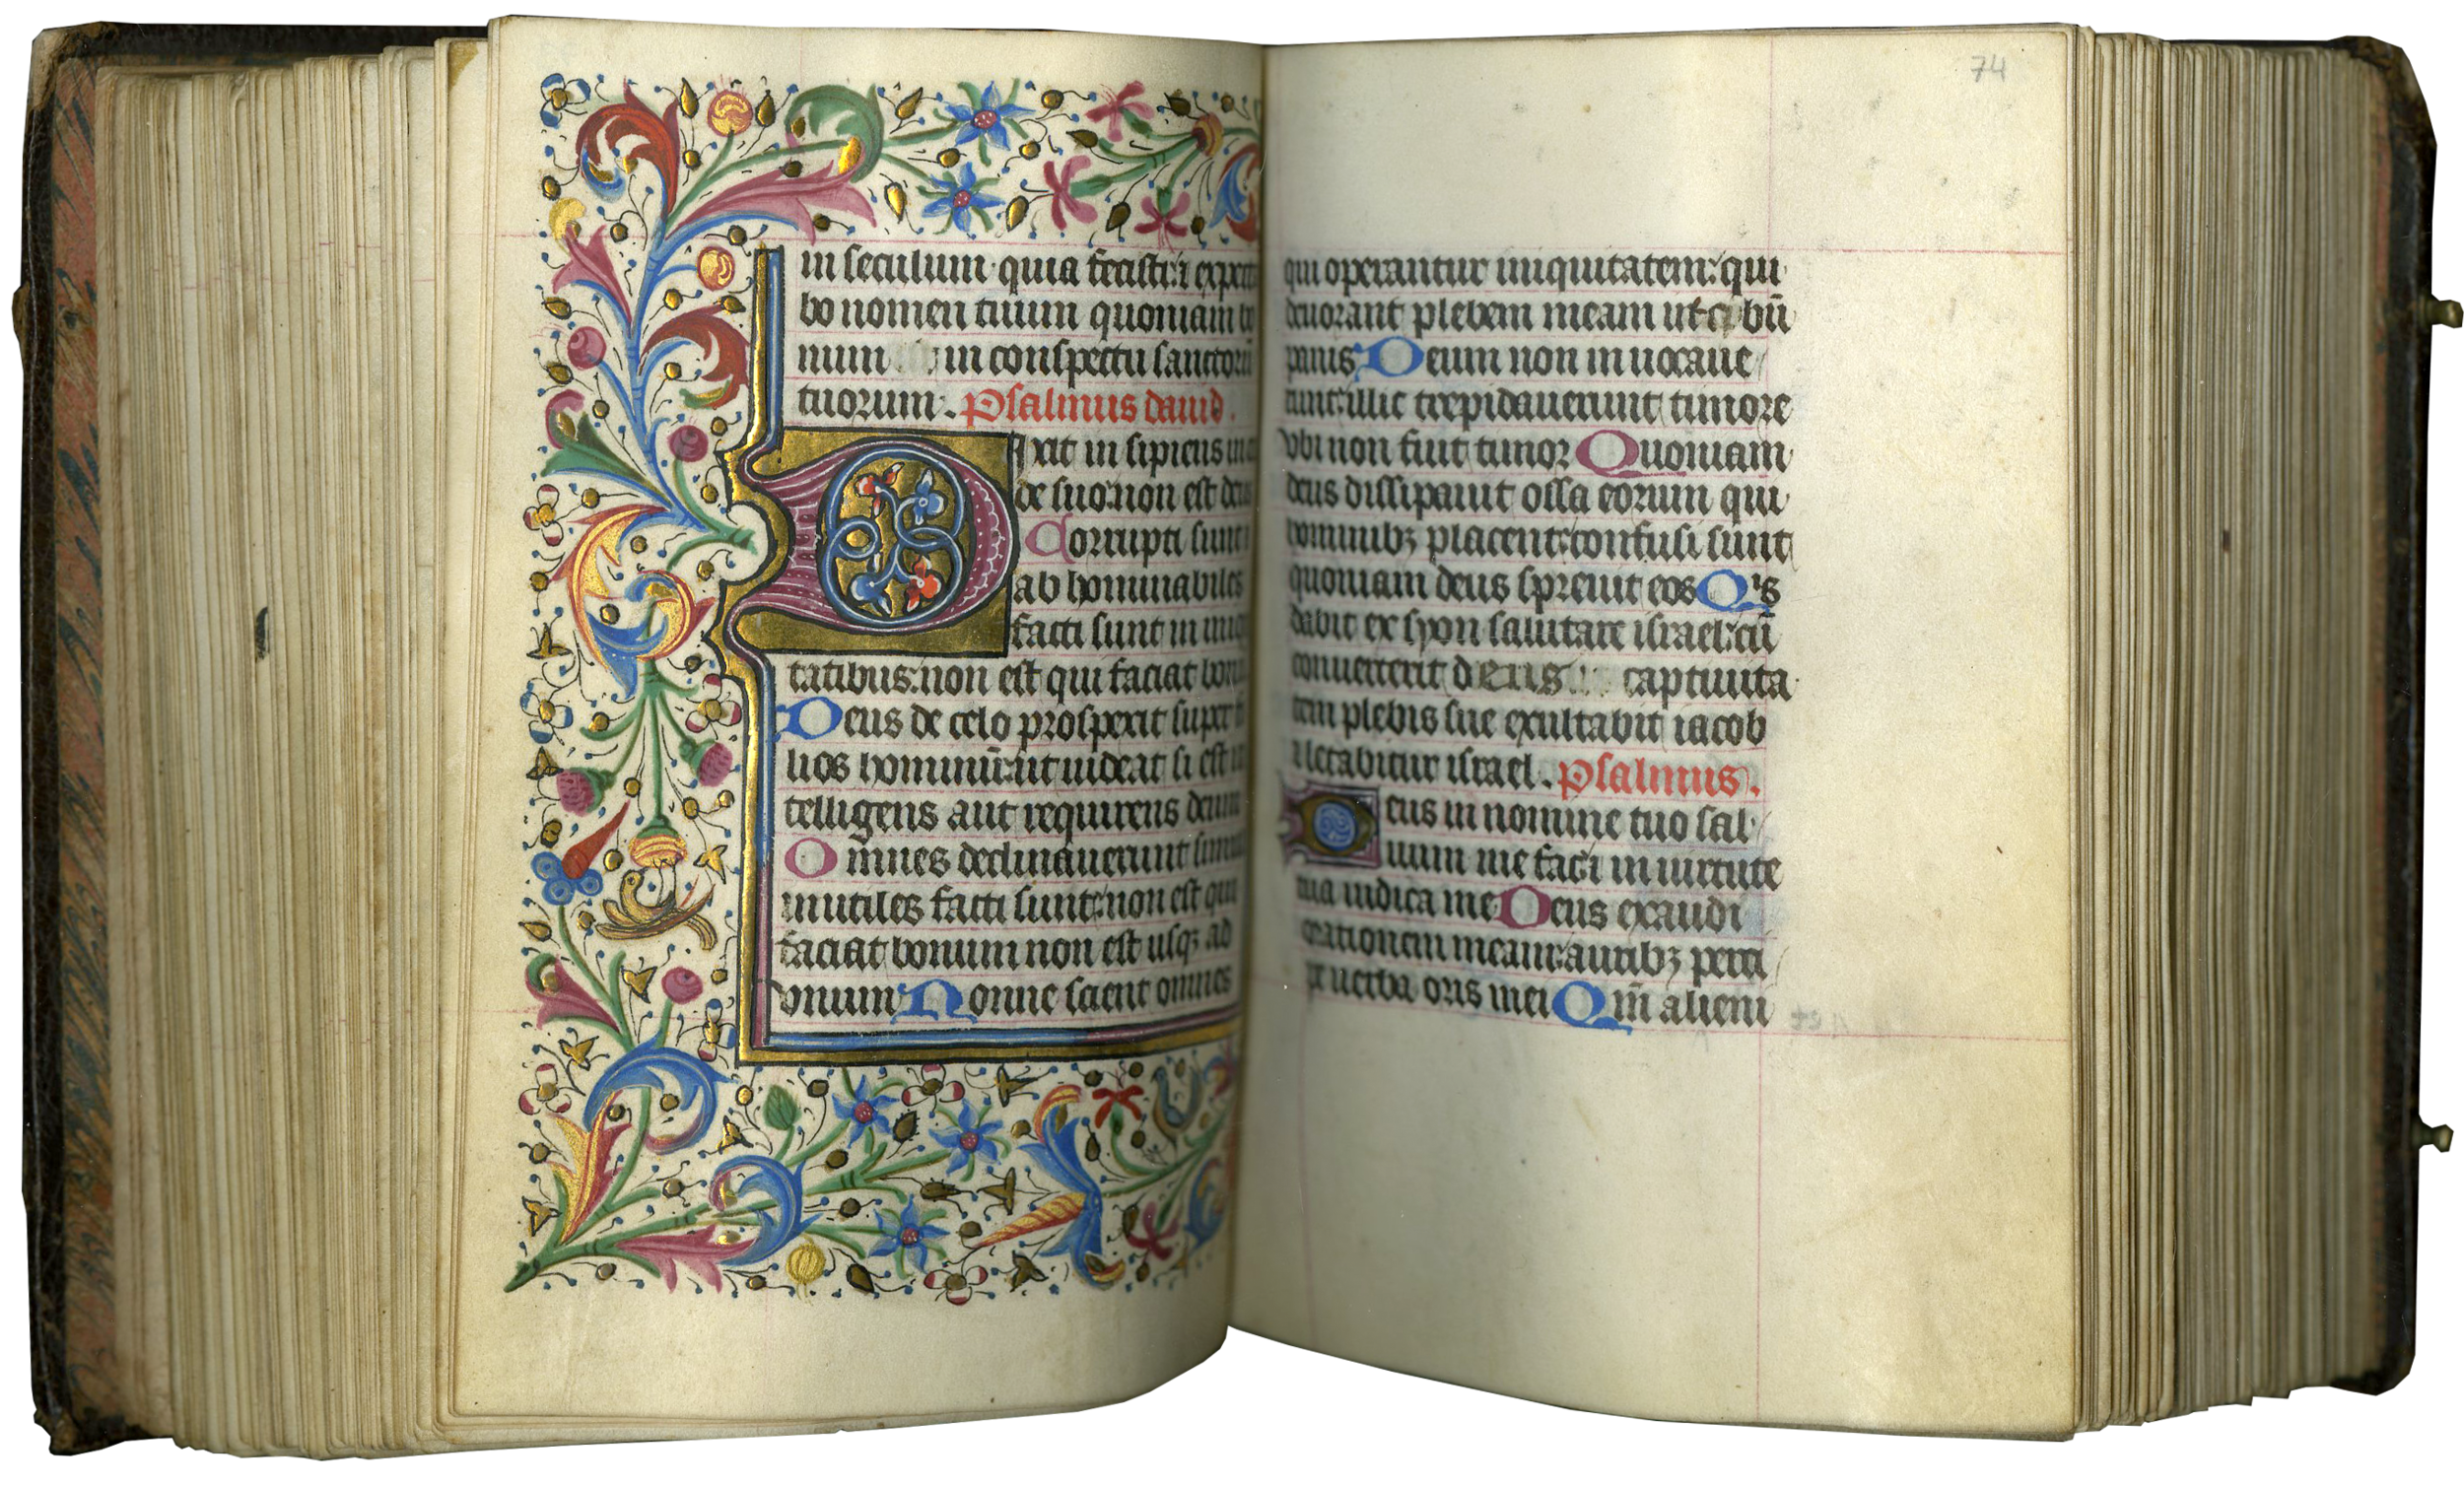 in seculum quia fecisti: ⁊ expecta
bo nomen tuum quoniam bo
num in conspectu sanctorū
tuorum. Psalmus dauid.
Dixit in sipiens in
de suo: non est deus
Corrupti sunt ⁊
ab hominabiles
facti sunt in iniq
tatibus: non est qui faciat bonū
Deus de celo prospexit super fi
lios hominū: ut uideat si est in
telligens aut requirens deum
Omnes declinauerunt simul
inutiles facti sunt: non est qui
faciat bonum non est usqꝫ ad
vnum Nonne scient omnes
74
qui operantur iniquitatem: qui
deuorant plebem meam ut cibū
panis Deum non inuocaue
runt: illic trepidauerunt timore
vbi non fuit timor Quoniam
deus dissipauit ossa eorum qui
hominibꝫ placent: confusi sunt
quoniam deus spreuit eos Qis
dabit ex syon salutare israel: cū
conuerterit deus captiuita
tem plebis sue exultabit iacob
⁊ letabitur israel. Psalmus.
Deus in nomine tuo sal
uum me fac: ⁊ in uirtute
tua iudica me Deus exaudi
orationem meam: auribꝫ perci
pe uerba oris mei Qm̄ alieni